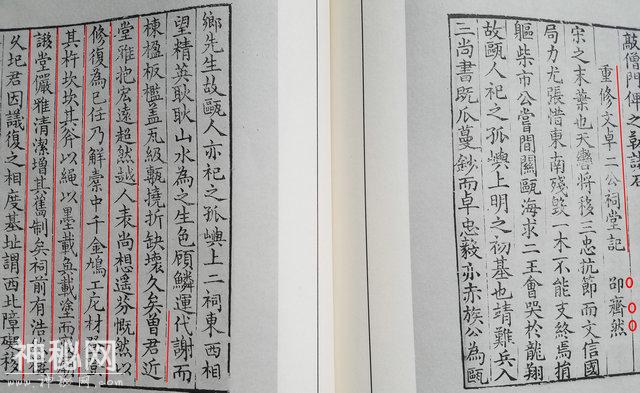 敲僧門便之
重修文卓二公祠堂記 邵齊然
宋之末葉也天將移三忠抗節而文信國
局力尤張惜東南殘毀一木不能支終焉捐
軀柴市公嘗間關甌海求二王會哭於龍翔
故甌人祀之孤嶼上明之初基也靖難兵入
三尚書既瓜蔓鈔而卓忠毅亦赤族公為甌
鄉先生故甌人亦祀之孤嶼上二祠東西相
望精英耿耿山水為之生色顧鱗運代謝而
棟楹板檻蓋瓦級甎撓折缺壞久矣曾君近
堂雅抱宏遠超然越人表尚想遙芬慨然以
修復為己任乃解橐中千金鳩工庀材
其杵坎坎其斧以繩以墨載載塗而
堂儼雅清潔增其舊制矣祠前有浩
久圮君因議復之相度基址謂西北障礙移
神秘网